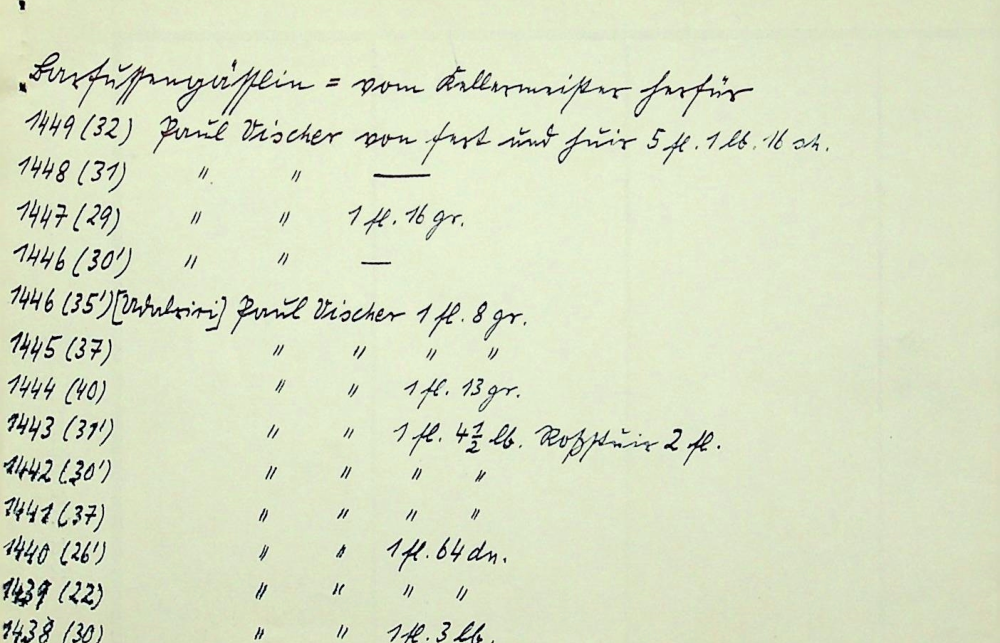 Barfussengässlin = vom Kellermeister herfür
1449 (32) Paul Vischer von fert und huir 5 fl. 1 lb. 16 sh.
1448 (31) " " —
1447 (29) " " 1 fl. 16 gr.
1446 (30') " " —
1446 (35') [Udalrici] Paul Vischer 1 fl. 8 gr.
1445 (37) " " " "
1444 (40) " " 1 fl. 13 gr.
1443 (31') " " 1 fl. 4½ lb. Roßstuir 2 fl.
1442 (30') " " " "
1441 (37) " " " "
1440 (26') " " 1 fl. 64 dn.
1439 (22) " " " "
1438 (30) " " 1 fl. 3 lb.